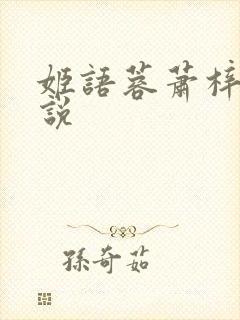 姬語蓉蕭梓
說
孫奇茹